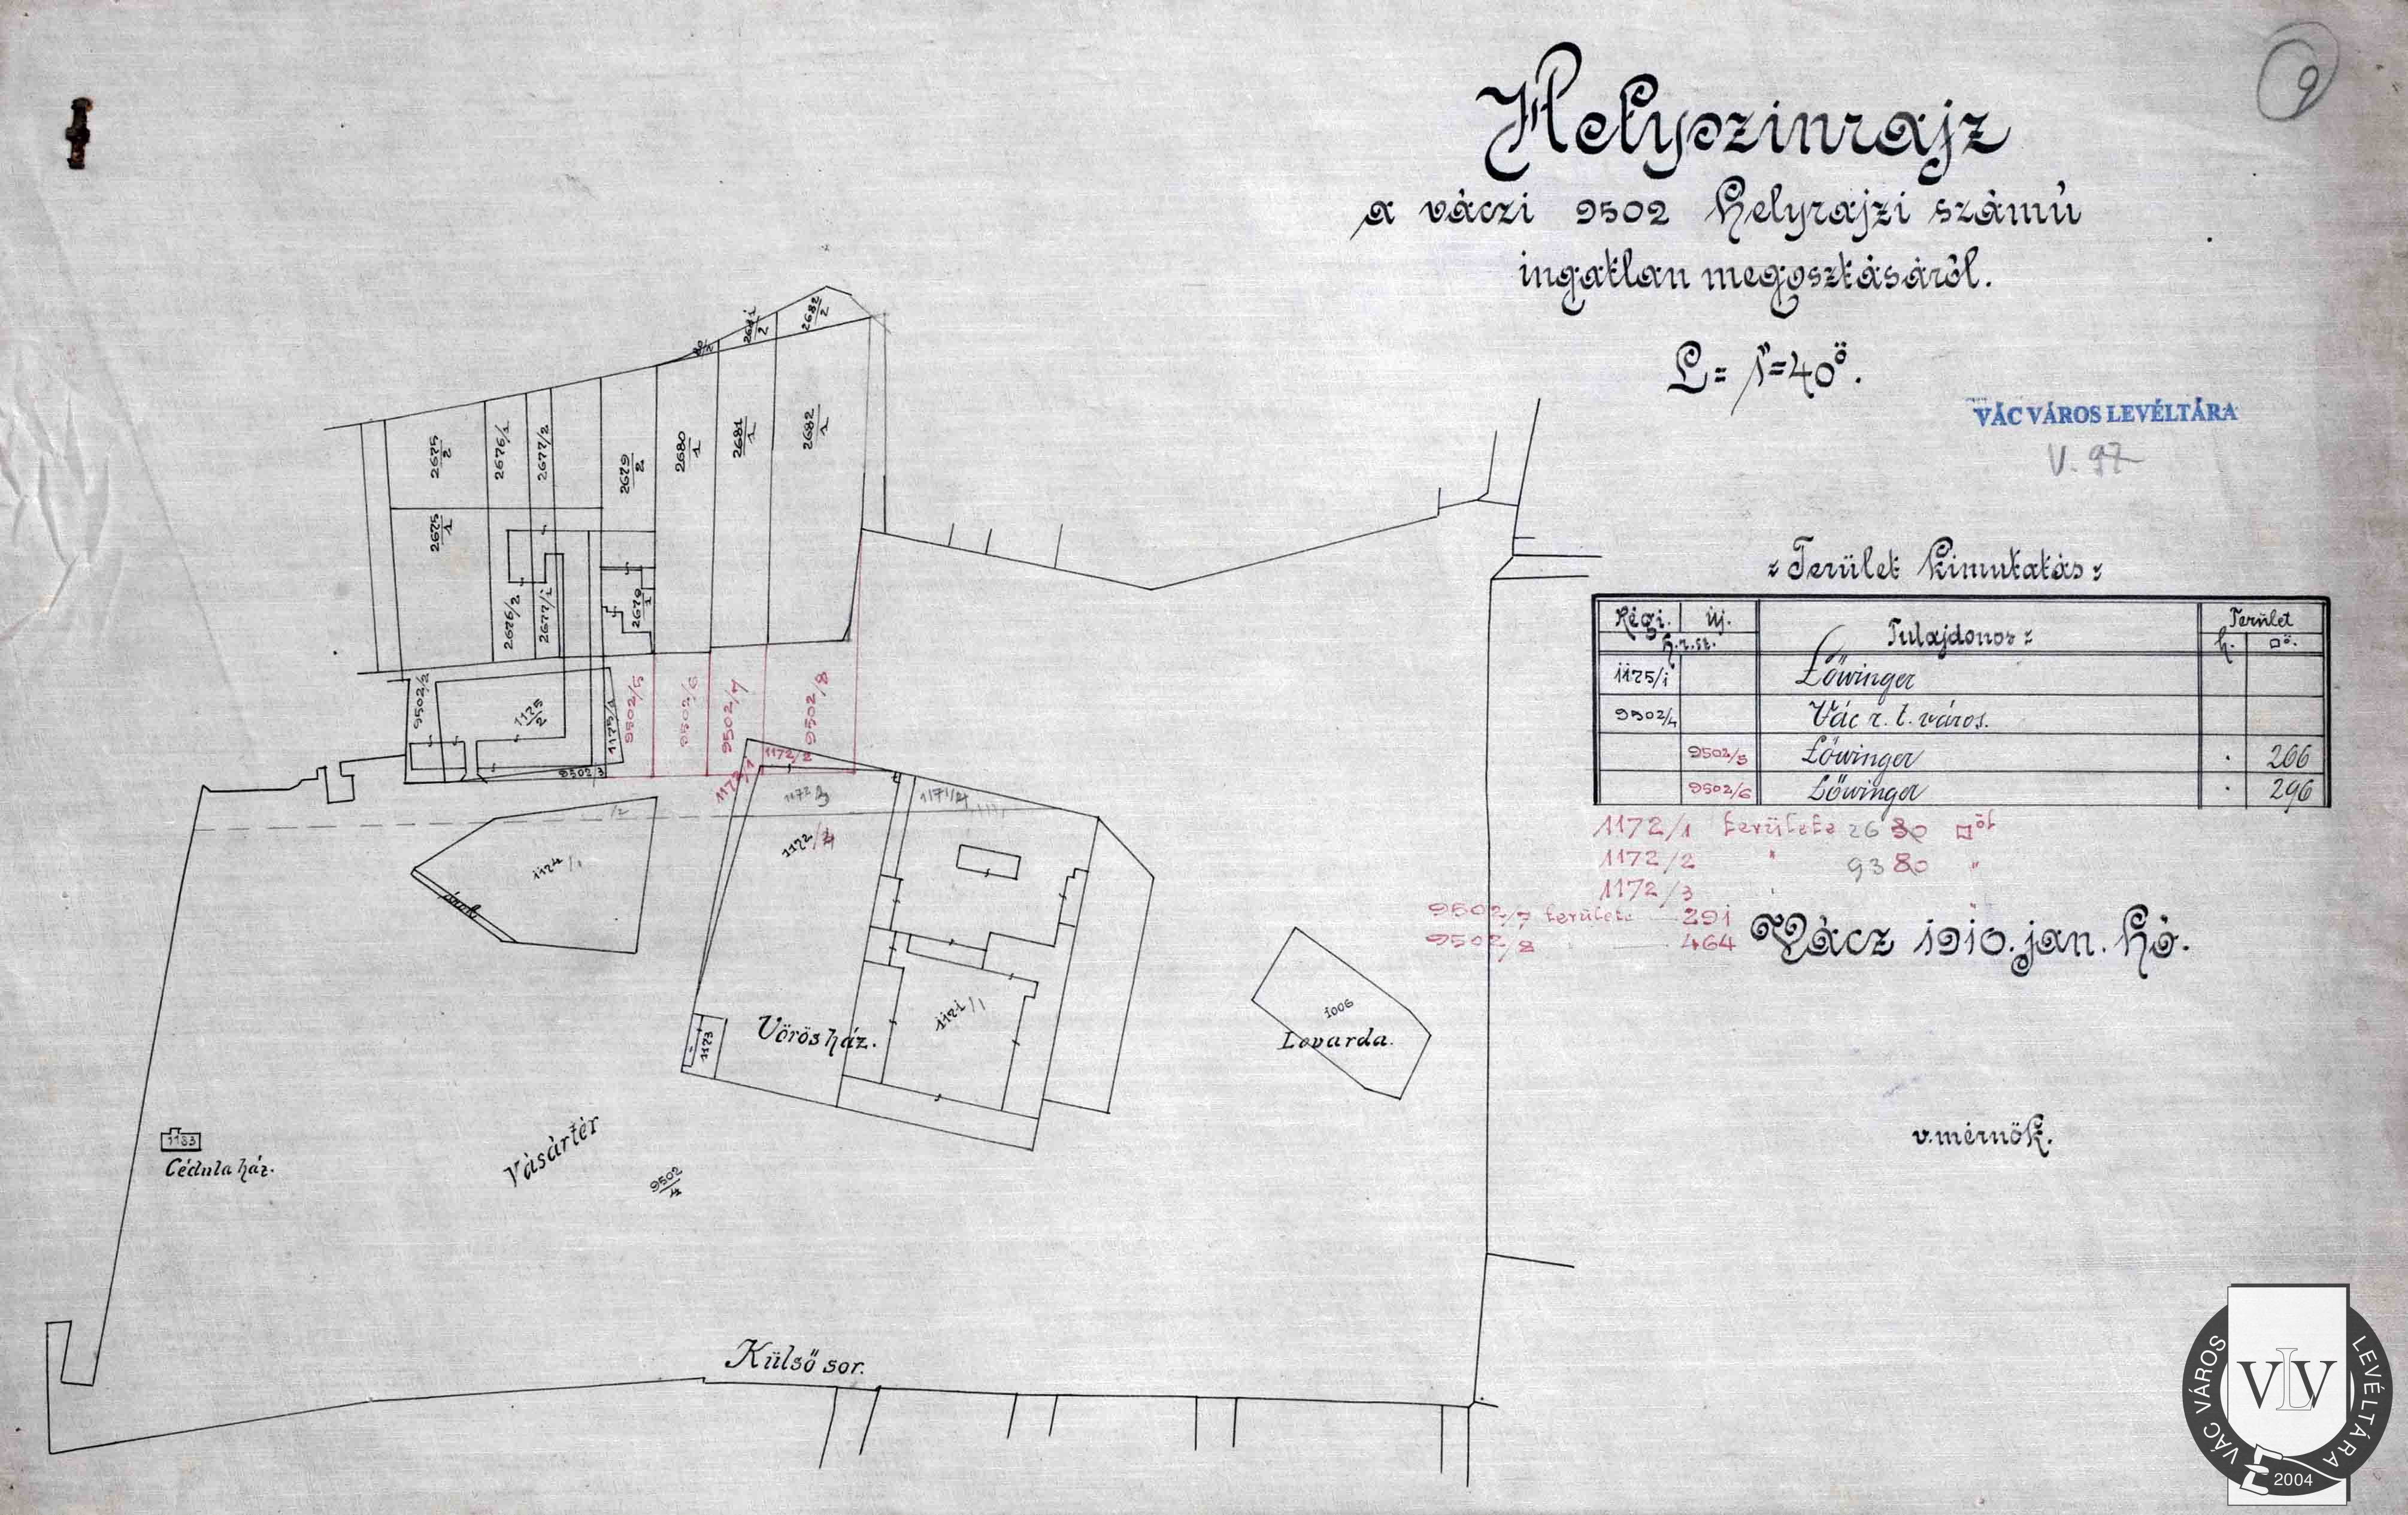 9
Helyszinrajz
a váczi 9502 helyrajzi számú
ingatlan megosztásáról.
L = 1"=40ö.
VÁC VÁROS LEVÉLTÁRA
V. 97
2681/2
2682/2
2675/2
2676/1
2677/2
2679/2
2680/1
2681/1
2682/1
2675/1
2676/2
2677/1
2679/1
9502/2
1175/2
1175/1
9502/5
9502/6
9502/7
9502/8
9502/3
1172/1
1172/2
1172/3
1171/2
1172/4
1174/1
/2
árok
1171/1
1173
Vörös ház.
1006
Lovarda.
1183
Cédula ház.
Vásártér
9502/4
Külső sor.
Terület kimutatás
Régi. új. Tulajdonos Terület
h.r.sz. h. □ö.
1175/1 Lőwinger
9502/4 Vác r. t. város.
9502/5 Lőwinger . 266
9502/6 Lőwinger . 296
1172/1 területe 26 30 □öl
1172/2 " 93 80 "
1172/3 "
9502/7 területe — 291
9502/8 " — 464
Vácz 1910. jan. hó.
v. mérnök.
VÁC VÁROS LEVÉLTÁRA
VLV
2004